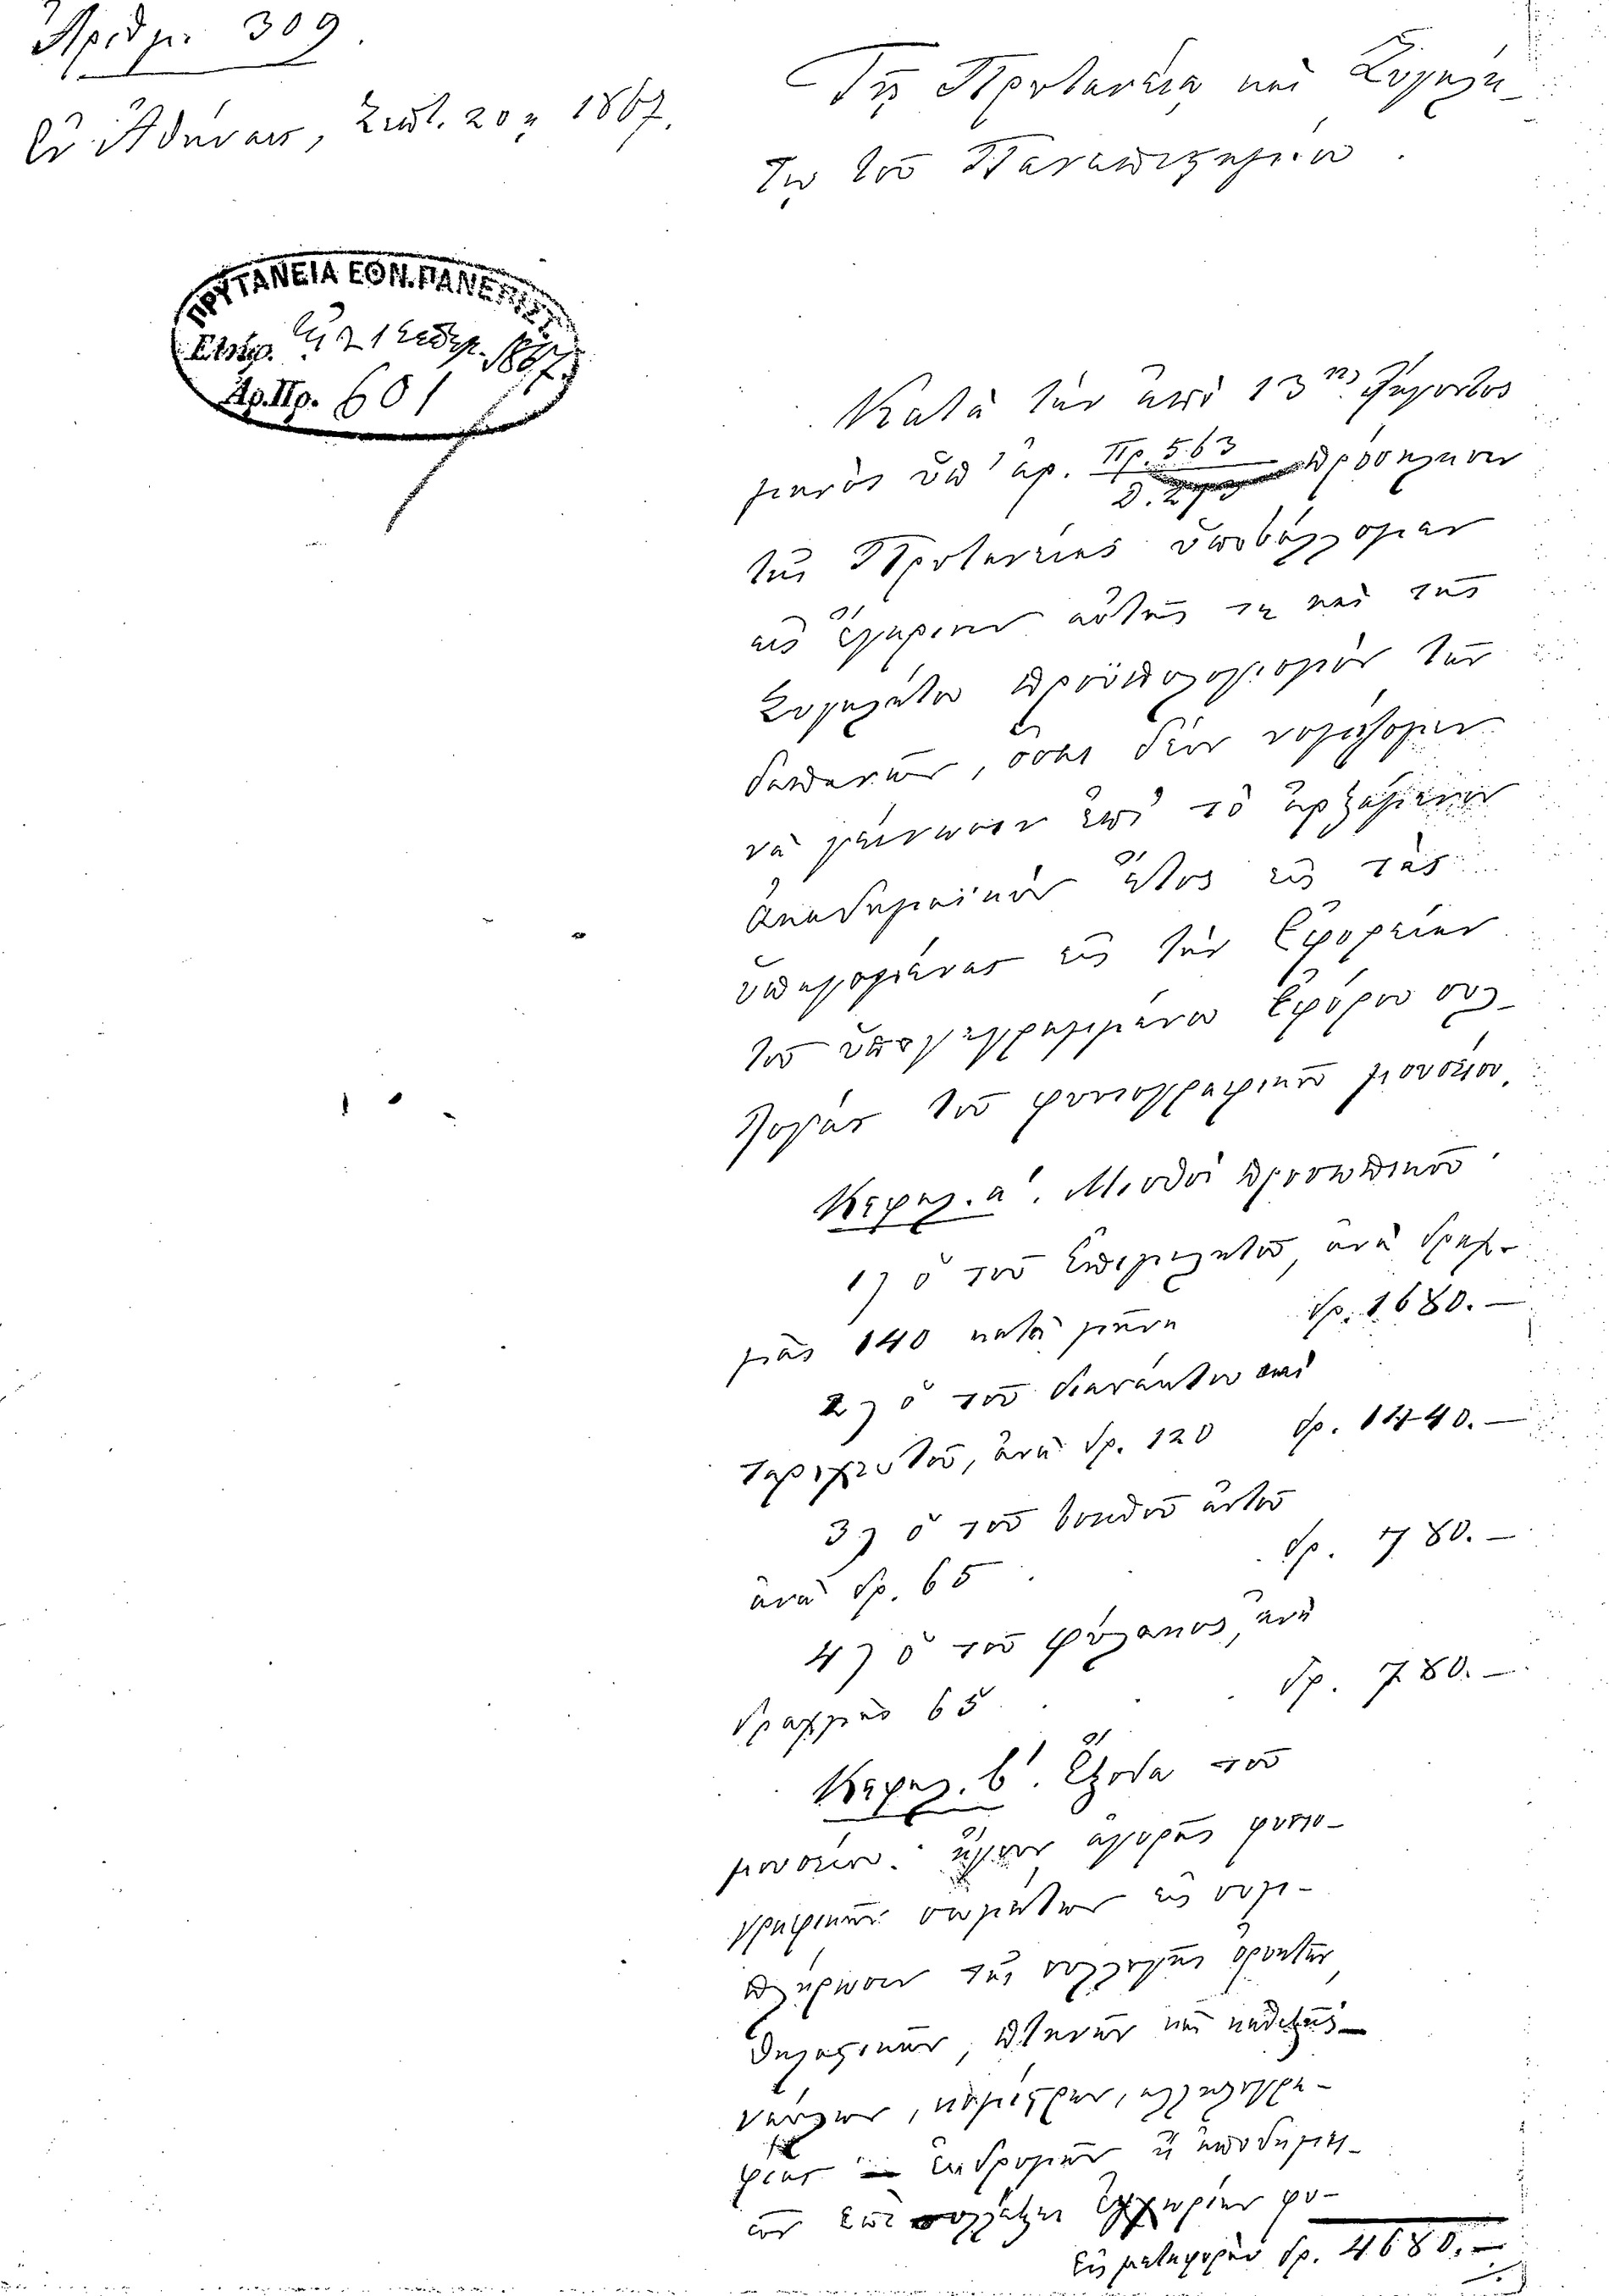 Ἀριθμ. 309.
Ἐν Ἀθήναις, Σεπτ. 20ῃ 1867.
Τῇ Πρυτανείᾳ καὶ Συγκλή-
τῳ τοῦ Πανεπιστημίου.
ΠΡΥΤΑΝΕΙΑ ΕΘΝ. ΠΑΝΕΠΙΣΤ.
Ἐλήφ. τῇ 21 Σεπτεμ. 1867.
Ἀρ. Πρ. 601
Κατὰ τὴν ἀπὸ 13ης Αὐγούστου
μηνὸς ὑπ' ἀρ. Πρ. 563 πρόσκλησιν
τῆς Πρυτανείας ὑποβάλλομεν
εἰς ἔγκρισιν αὐτῆς τε καὶ τῆς
Συγκλήτου προϋπολογισμὸν τῶν
δαπανῶν, ὅσαι δέον νομίζομεν
νὰ γείνωσιν ἐπὶ τὸ ἀρξάμενον
ἀκαδημαϊκὸν ἔτος εἰς τὰς
ὑπαγομένας εἰς τὴν Ἐφορείαν
τοῦ ὑπογεγραμμένου Ἐφόρου συλ-
λογὰς τοῦ φυσιογραφικοῦ μουσείου.
Κεφαλ. α'. Μισθοὶ προσωπικοῦ.
1) ὁ τοῦ Ἐπιμελητοῦ, ἀνὰ δραχ-
μὰς 140 κατὰ μῆνα δρ. 1680.—
2) ὁ τοῦ διανύκτου καὶ
ταριχευτοῦ, ἀνὰ δρ. 120 δρ. 1440.—
3) ὁ τοῦ βοηθοῦ αὐτοῦ
ἀνὰ δρ. 65 δρ. 780.—
4) ὁ τοῦ φύλακος, ἀνὰ
δραχμὰς 65 δρ. 780.—
Κεφαλ. β'. Ἔξοδα τοῦ
μουσείου: ἤγουν ἀγορᾶς φυσιο-
γραφικῶν σωμάτων εἰς συμ-
πλήρωσιν τῆς συλλογῆς ὀρυκτῶν,
θηλαστικῶν, πτηνῶν καὶ καθεξῆς—
ναύλων, κομίστρων, ἀλληλογρα-
φίας — ἐκδρομῶν ἢ ἀποδημι-
ῶν ἐπὶ συλλέξει ἐγχωρίων φυ-
εἰς μεταφορὰν δρ. 4680.—